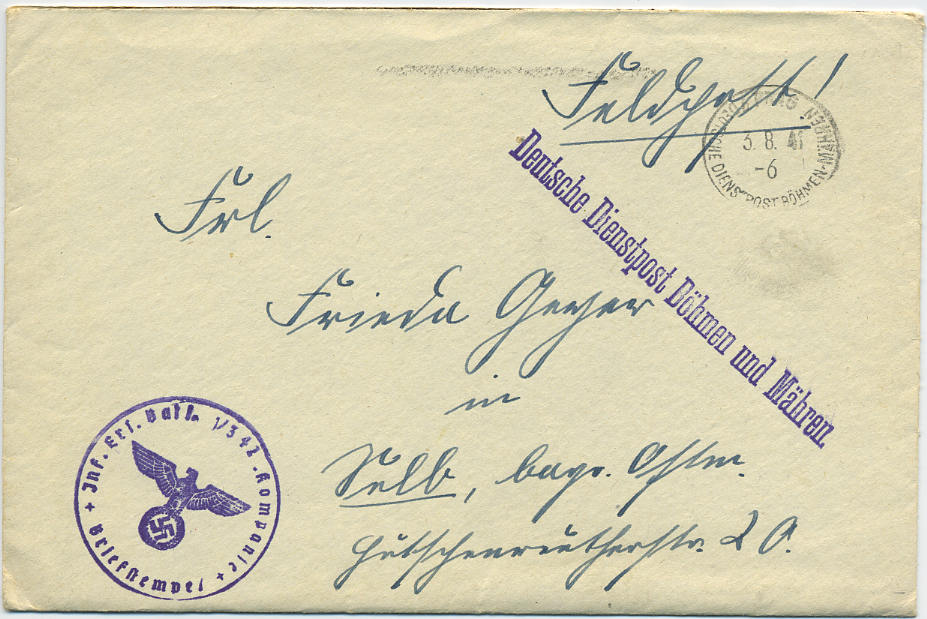 Feldpost!
DEUTSCHE DIENSTPOST BÖHMEN-MÄHREN
3. 8. 41
-6
Deutsche Dienstpost Böhmen und Mähren
Frl.
Frieda Geyer
in
Selb, bayr. Ostm.
Hutschenreutherstr. 20.
Inf. Ers. Batl. 1/342 . Kompanie
+ Briefstempel +